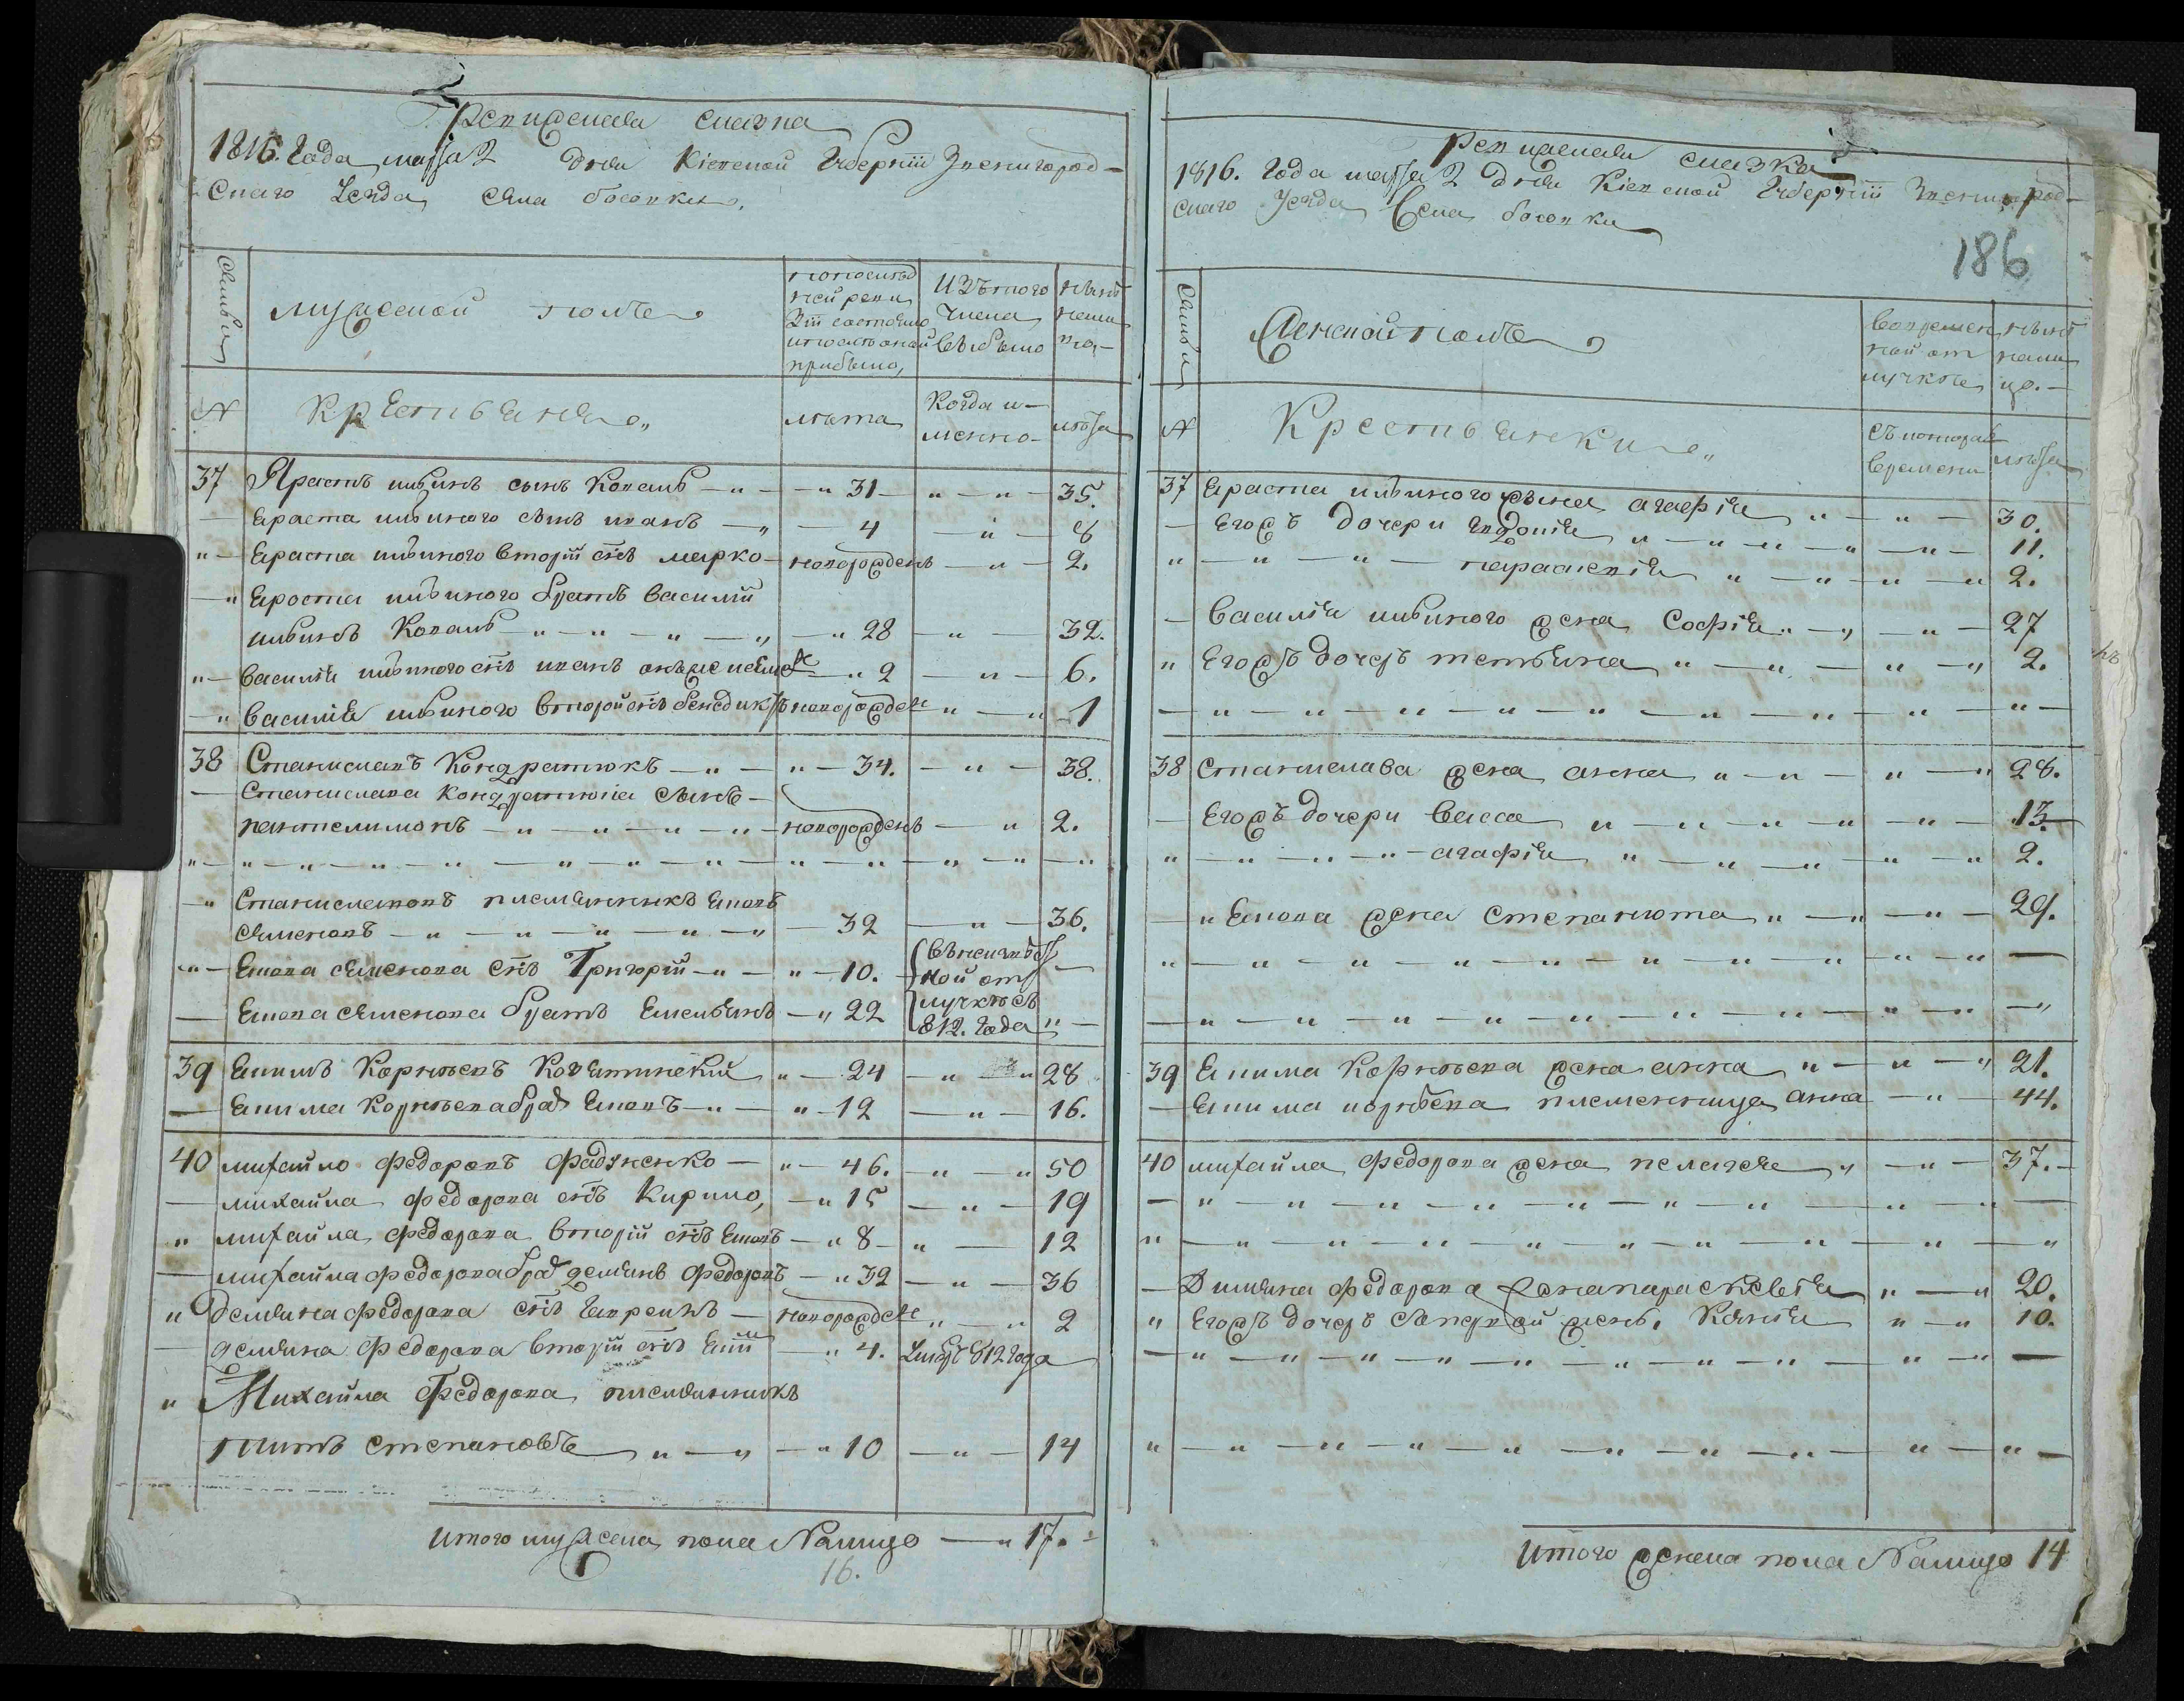 Ревижская сказка
1816. Года маія 2 дня Кіевской Губерніи Звенигород-
скаго уезда села босовки
Семьи
мужеской полъ
попослед
ней реви
зіи состояло
ипослѣ оной
прибыло,
Изътого
числа
выбыло
нынѣ
нали
цо,-
N
Крестьяне
лѣта
Когда и-
менно-
лѣта
37 Ярастъ ильинъ сынъ Коваль 31 35.
Ераста ильиного сынъ иванъ 4 8
Ераста ильиного вторій снъ марко новорожденъ 2.
Ероста ильиного братъ василій
ильинъ Коваль 28 32.
василія ильиного снъ иванъ 2 6.
василія ильиного второй снъ бенедиктъ новорожден 1
38 Станиславъ Кондратюкъ 34. 38.
Станислава Кондратюка сынъ
пантелимонъ новорожденъ 2.
Станиславовъ племянникъ Яковъ
семеновъ 32 36.
Якова семенова снъ Григорій 10.
Якова семенова братъ Емельянъ 22
лучкѣ съ
812. Года
39 Екимъ Корнѣевъ 24 28
Екима Корнѣева брат Яковъ 12 16.
40 михайло федоровъ фадѣенко 46. 50
михайла федорова снъ Кирило, 15 19
михайла федорова вторій снъ Яковъ 8 12
михайла федорова брат демянъ федоровъ 32 36
демяна федорова снъ Лаврентъ новорожден 2
демяна федорова вторій снъ 4. 812 Года
Михайла Федорова племянникъ
титъ степановъ 10 14
итого мужеска пола Налицо 17.
16.
ревижская сказка
1816. Года маія 2 дня Кіевской Губерніи Звенигород-
скаго уезда Села босовки
186
Семьи
Женской полъ
Вовремен
ной от
лучкѣ
нынѣ
нали
цо.-
N
Крестьянки
съ котораго
времени
лѣта
37 Ераста ильиного жена агафія 30.
Егожъ дочери Евдокія 11.
параскевія 2.
василія ильиного жена Софія 27
Егожъ дочеръ тетьяна 2.
38 Станислава жена анна 28.
Егожъ дочери васса 13.
агафія 2.
Якова жена степанюта 29.
39 Екима Корнѣева жена анна 21.
Екима корнѣева племенница анна 44.
40 михайла федорова жена пелагея 37.
Димяна федорова жена параскевія 20.
Егожъ дочеръ съ первой жены, Ксенія 10.
итого женска пола Налицо 14